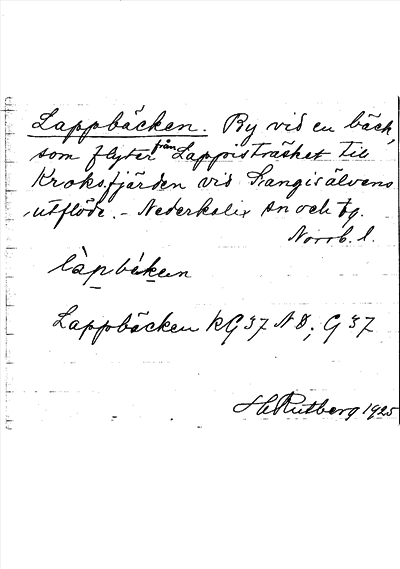 Lappbäcken. By vid en bäck,
som flyter från Lappisträsket till
Kroksfjärden vid Sangisälvens
utflöde. - Nederkalix sn och tg.
Norrb. l.
làpbèken
Lappbäcken KG 37 NØ; G 37
H Rutberg 1925